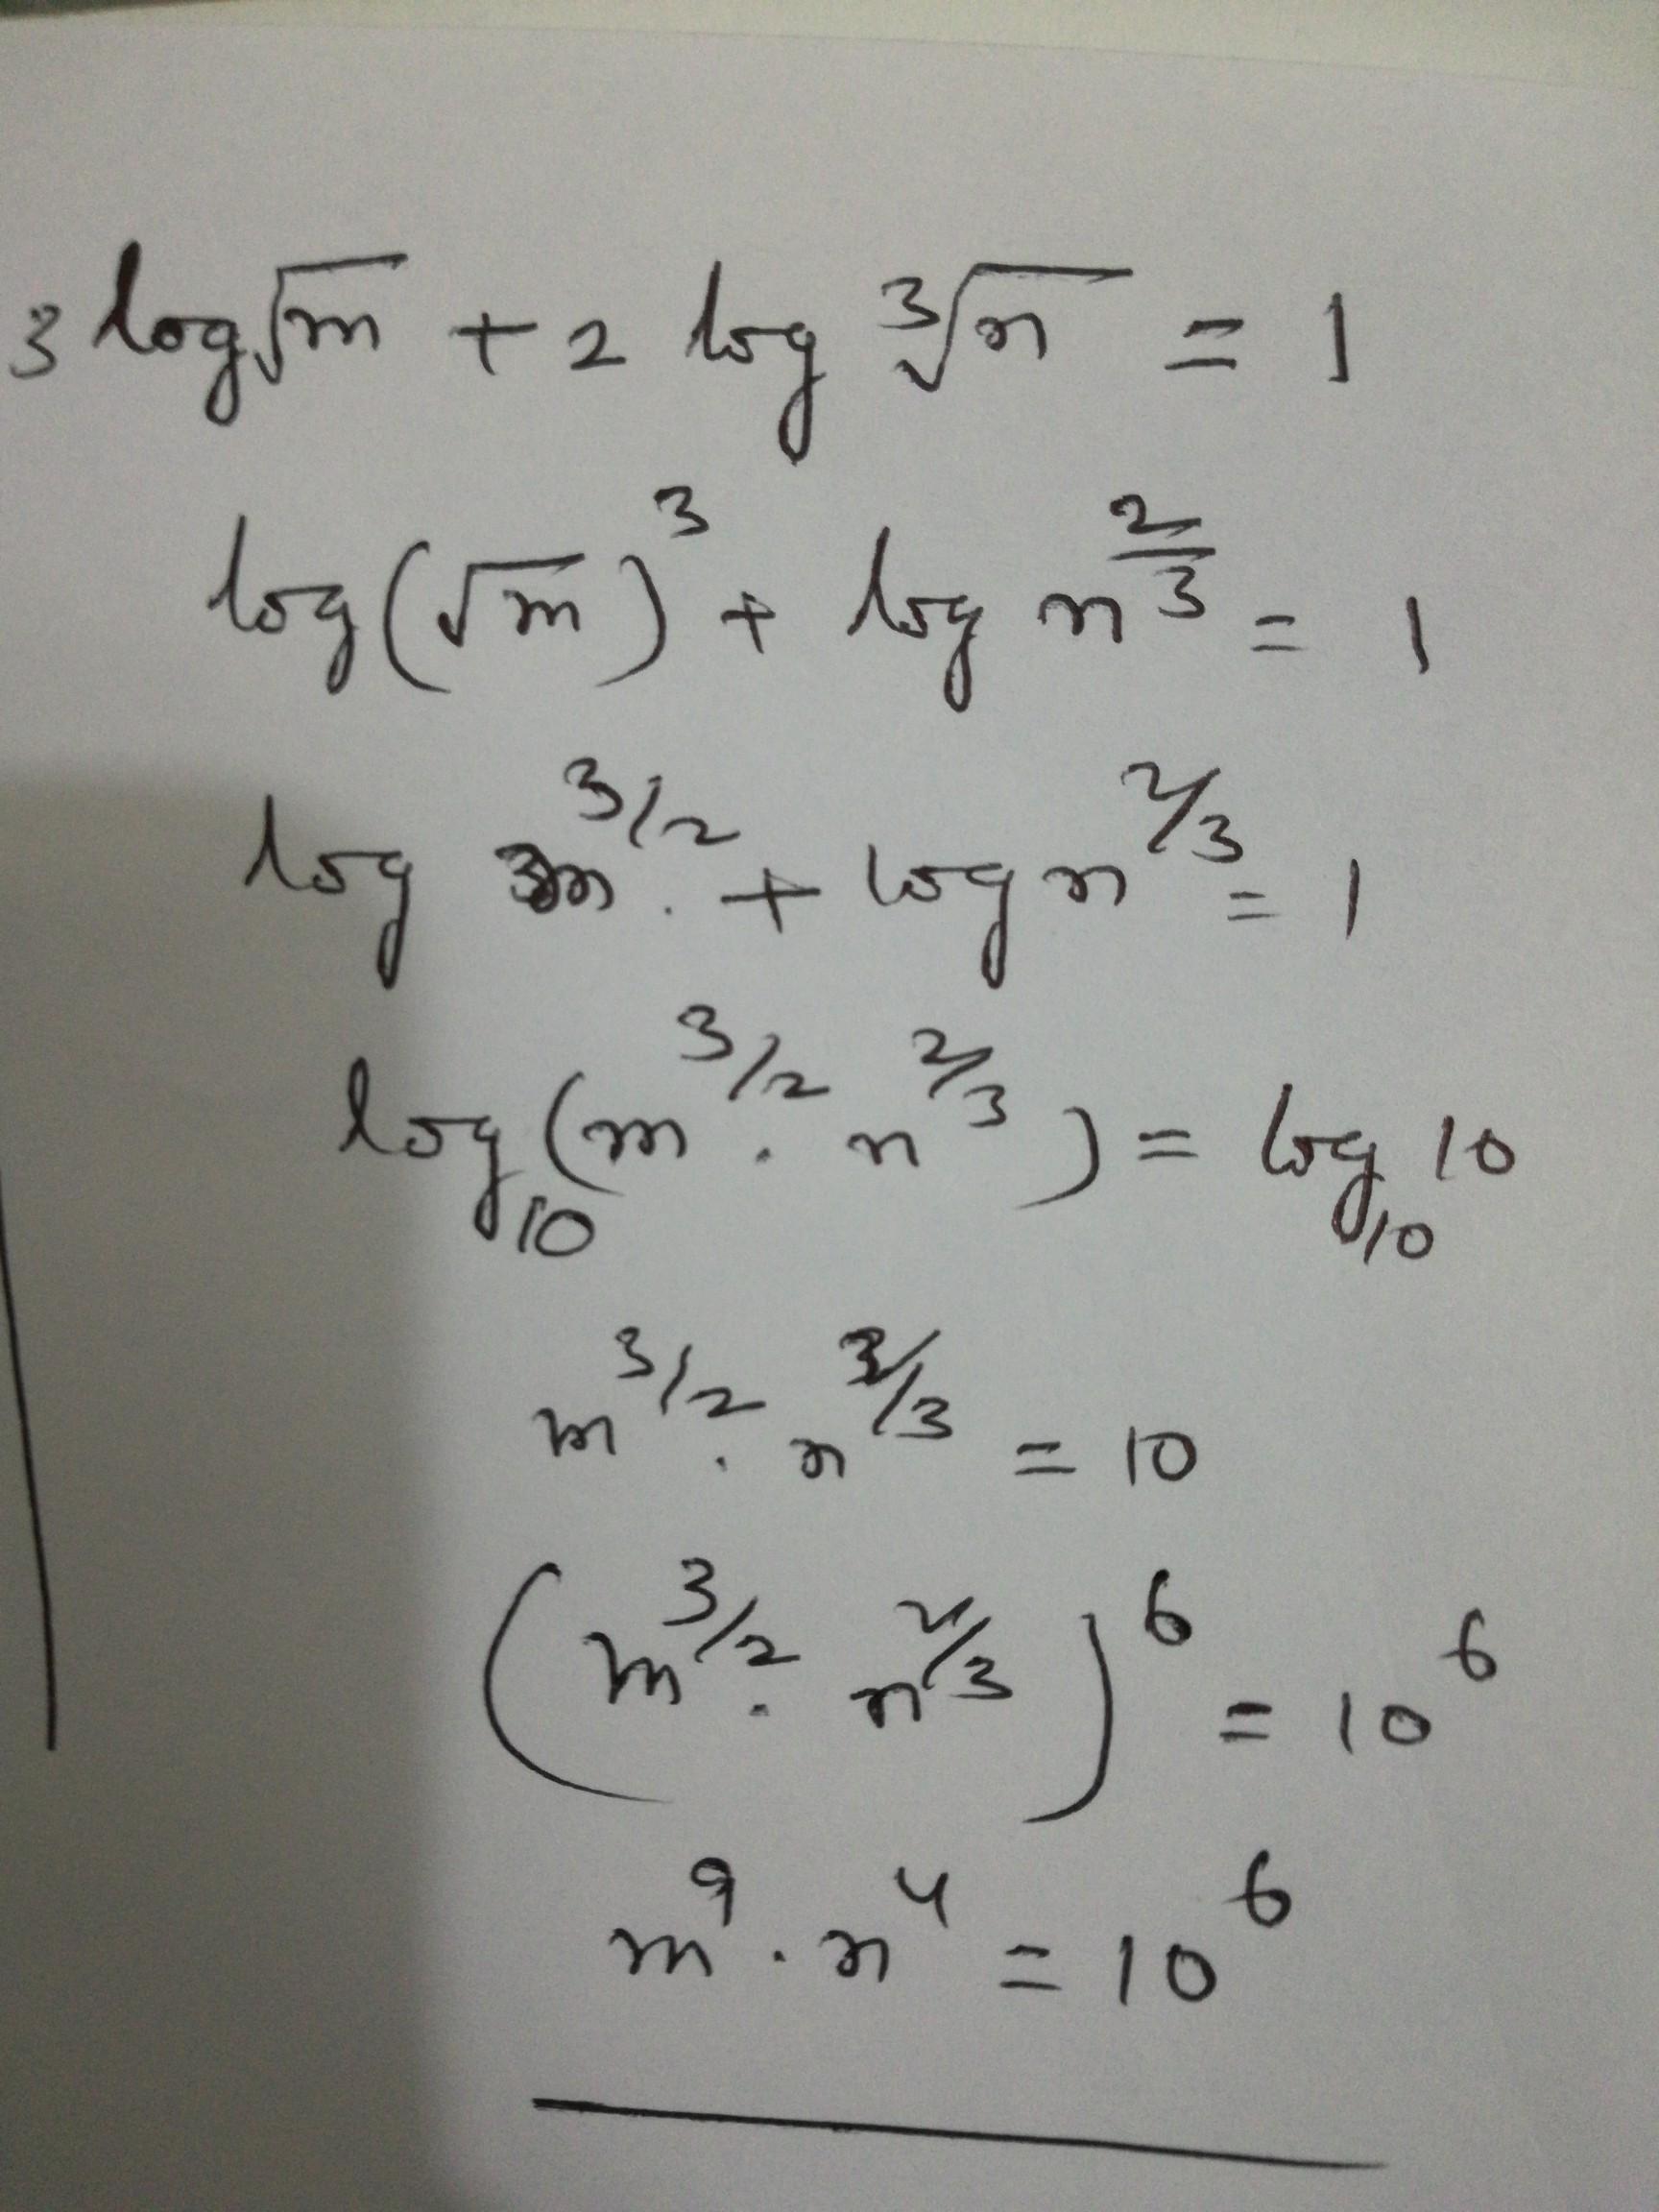 3 log√m + 2 log ³√n = 1
log(√m)³ + log n^(2/3) = 1
log m^(3/2) + log n^(2/3) = 1
log₁₀(m^(3/2) . n^(2/3)) = log₁₀ 10
m^(3/2) . n^(2/3) = 10
(m^(3/2) . n^(2/3))⁶ = 10⁶
m⁹ . n⁴ = 10⁶